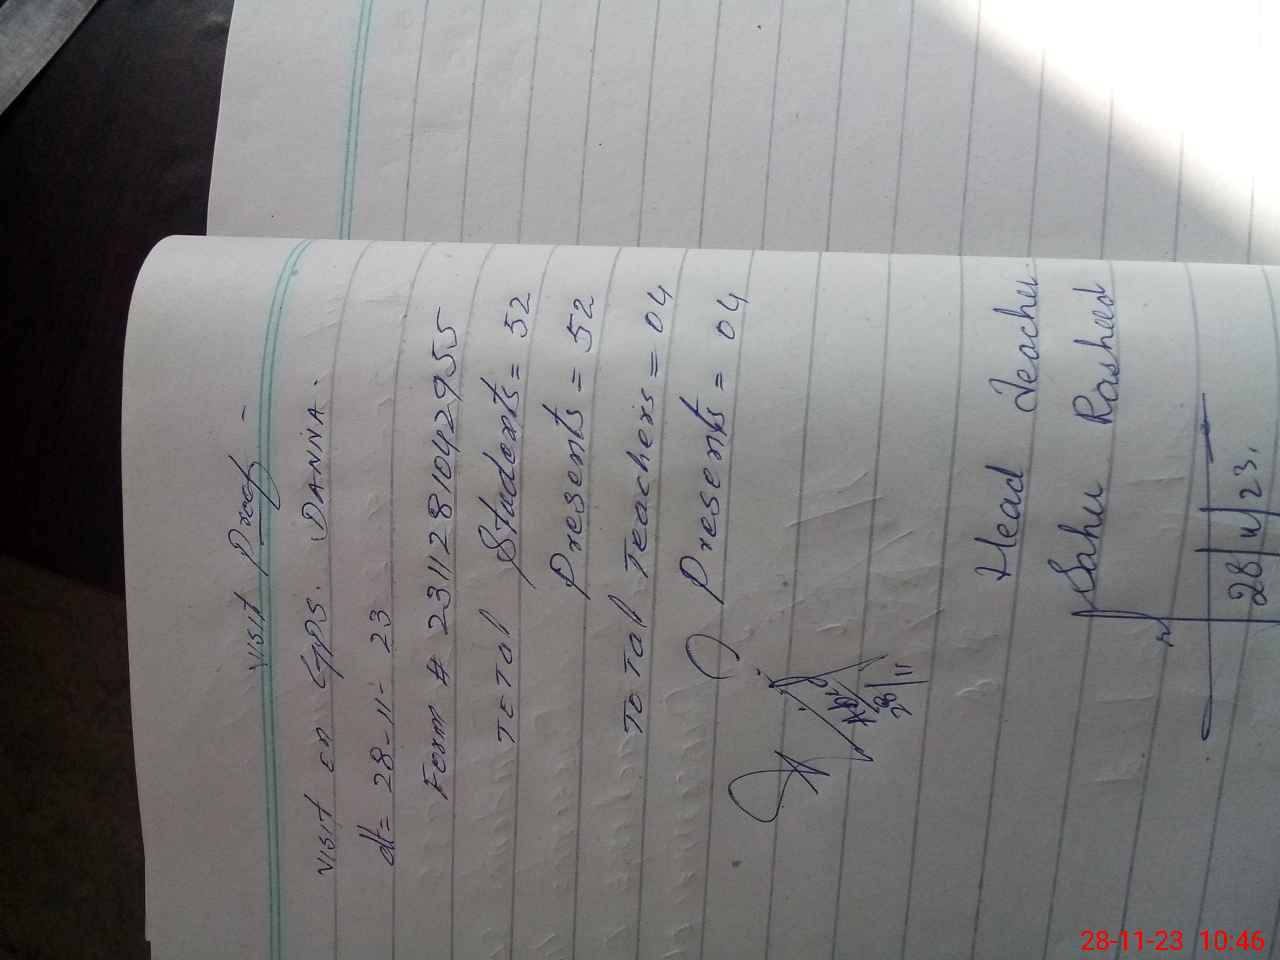 Visit Proof -
Visit on GPS. DANNA.
dt= 28-11-23
Form # 231128104429 55
Total Students = 52
Presents = 52
Total Teachers = 04
Presents = 04
28/11
Head Teacher
Rasheed
28/11/23.
28-11-23 10:46